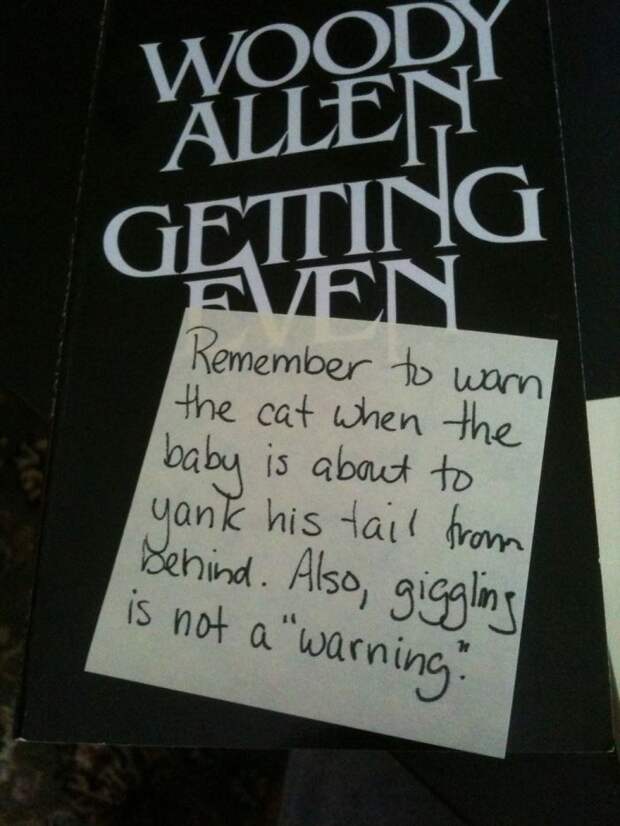 WOODY
ALLEN
GETTING
EVEN
Remember to warn
the cat when the
baby is about to
yank his tail from
behind. Also, giggling
is not a "warning."